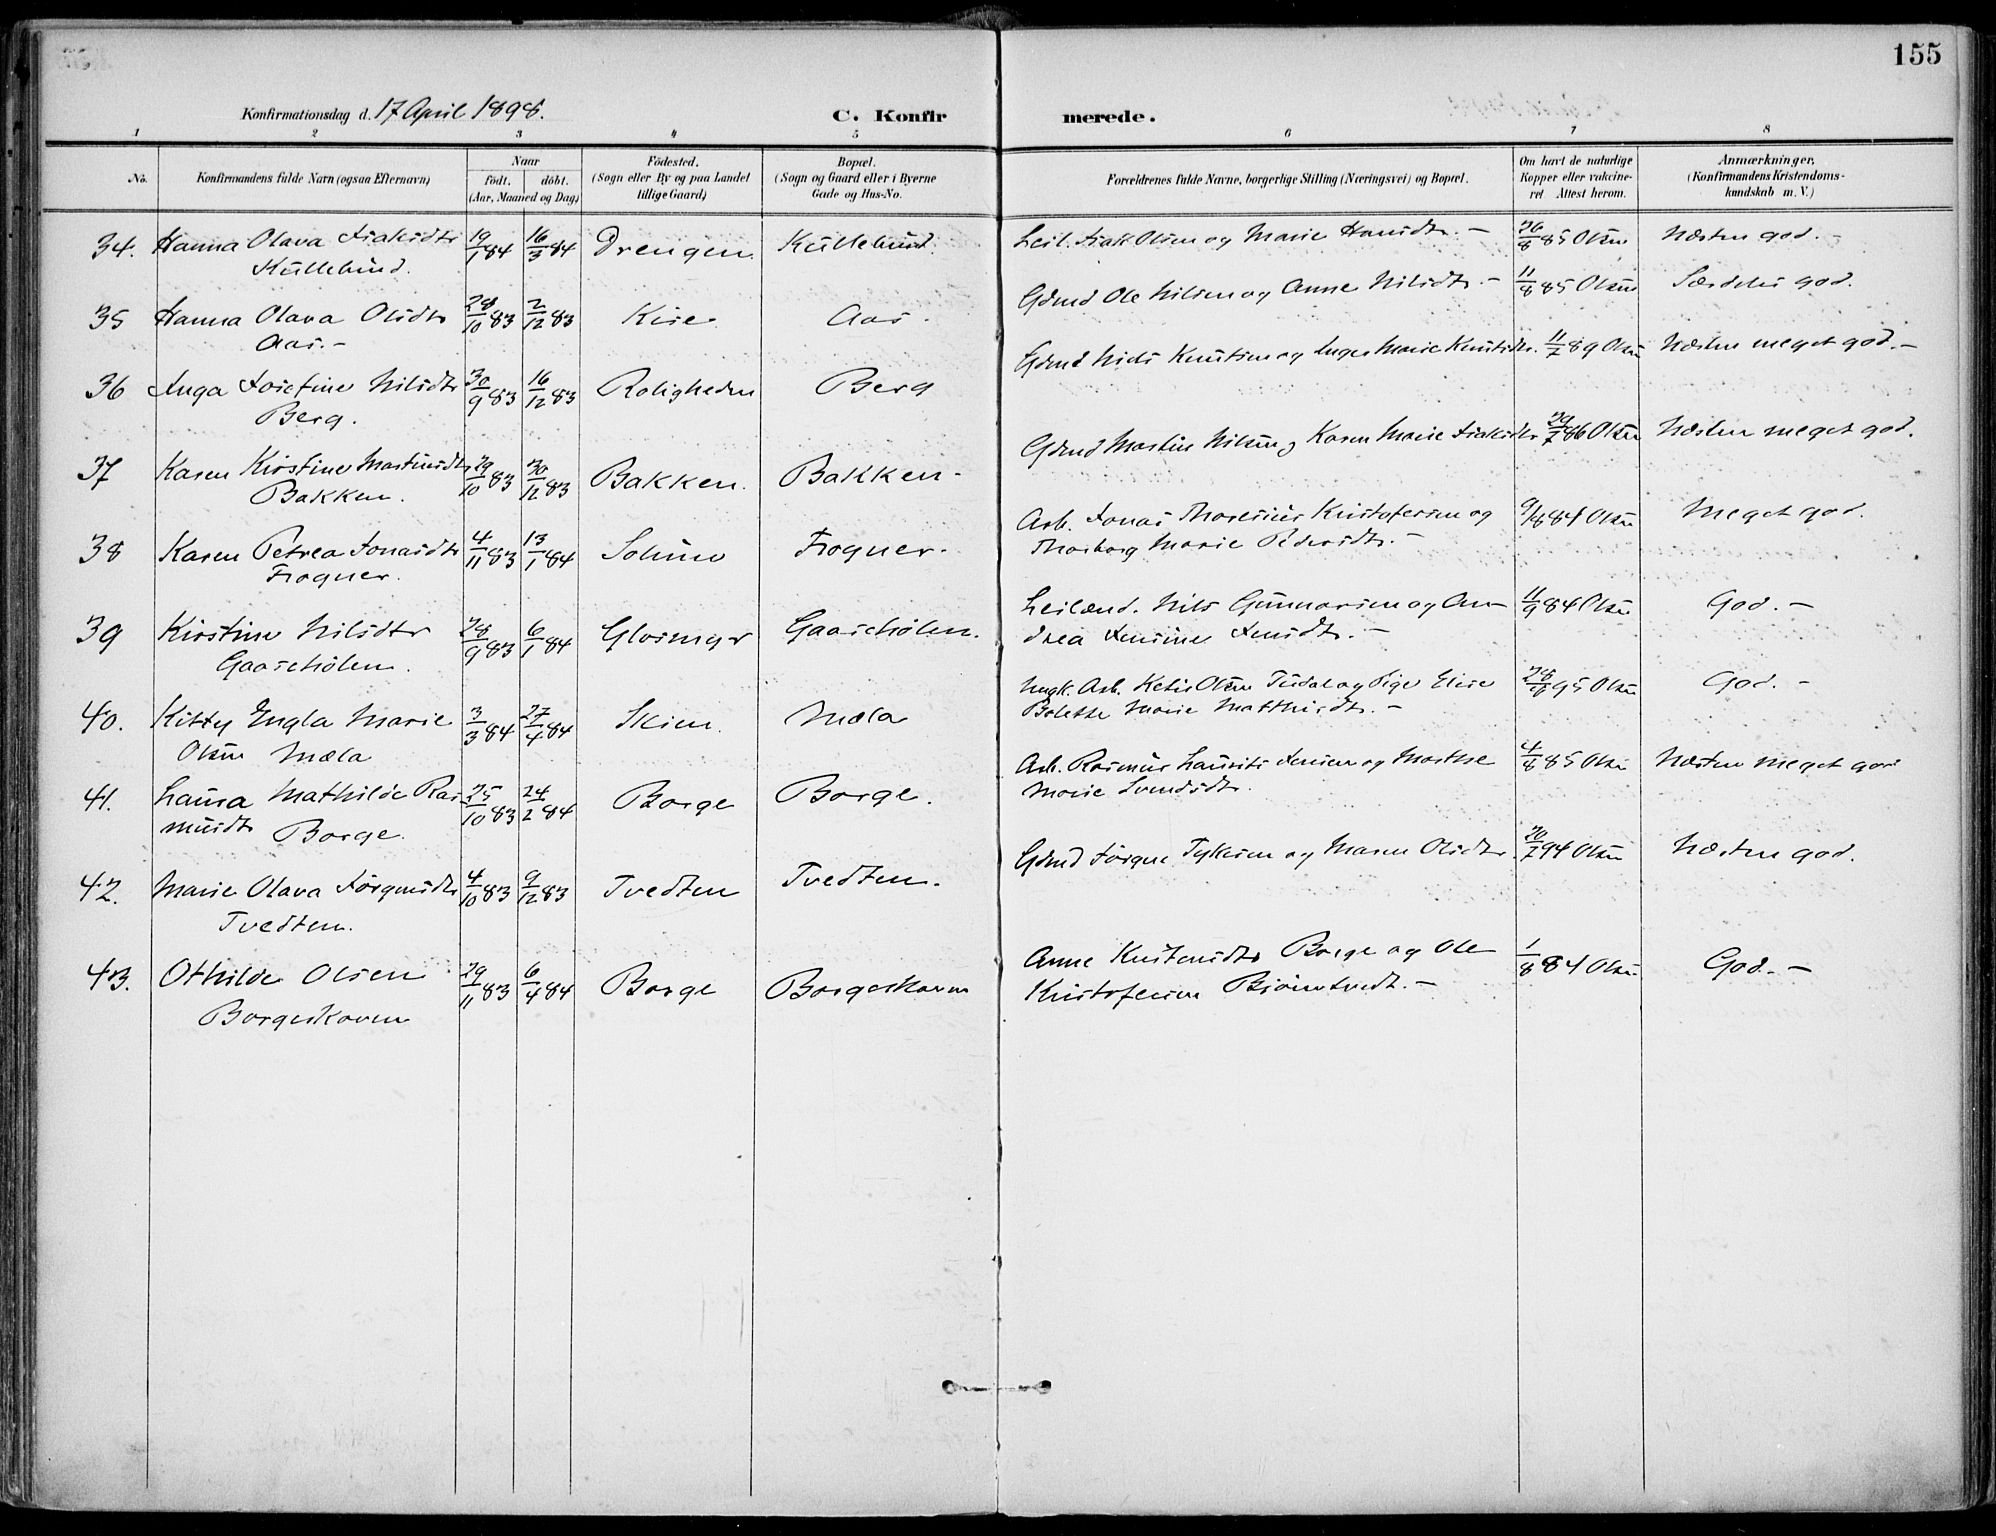 155
Konfirmationsdag d. 17 April 1898.
C. Konfirmerede.
1 2 3 4 5 6 7 8
No.
Konfirmandens fulde Navn (ogsaa Efternavn)
Naar
födt. döbt.
(Aar, Maaned og Dag)
Födested.
(Sogn eller By og paa Landet
tillige Gaard)
Bopæl.
(Sogn og Gaard eller i Byerne
Gade og Hus-No.
Forældrenes fulde Navne, borgerlige Stilling (Næringsvei) og Bopæl.
Om havt de naturlige
Kopper eller vakcine-
ret Attest herom.
Anmærkninger,
(Konfirmandens Kristendoms-
kundskab m. V.)
34. Hanna Olava Isaksdtr 19/1 84 16/3 84 Drengen Kullebund. Leil. Isak Olsen og Marie Hansdtr. – 26/8 85 Olsen Næsten god. –
Kullebund.
35 Hanna Olava Olsdtr 28/10 83 2/12 83 Kise Aas. Gdmd Ole Nilsen og Anne Nilsdtr. – 11/8 85 Olsen Særdeles god.
Aas. –
36 Inga Josefine Nilsdtr 30/9 83 16/12 83 Roligheden Berg Gdmd Nils Knutsen og Inger Marie Knutsdtr. 11/7 89 Olsen Næsten meget god. –
Berg.
37 Karen Kirstine Martinsdtr 29/10 83 30/12 83 Bakken. Bakken – Gdmd Martin Nilsen og Karen Marie Isaksdtr 30/7 86 Olsen Næsten meget god.
Bakken.
38 Karen Petrea Jonasdtr 4/11 83 13/1 84 Solum Frogner. Arb. Jonas Thorsenius Kristofersen og 9/8 84 Olsen Meget god.
Frogner. Thorborg Marie Pedersdtr. –
39 Kirstine Nilsdtr 28/9 83 6/1 84 Glosmyr Gaasehølen. Leilænd. Nils Gunnarsen og An- 11/9 84 Olsen God. –
Gaasehølen. drea Jensine Jensdtr. –
40. Kitty Engla Marie 3/3 84 27/4 84 Skien. Mæla Ungk. Arb. Ketil Olsen Tudal og Pige Elise 28/8 95 Olsen God. –
Olsen Mæla Bolette Marie Matthisdtr. –
41. Laura Mathilde Ras 25/10 83 24/2 84 Borge Borge. Arb. Rasmus Laurits Jensen og Marthe 4/8 85 Olsen Næsten meget god
musdtr Borge. Marie Svendsdtr.
42. Marie Olava Jörgensdtr 4/10 83 9/12 83 Tvedten Tvedten. Gdmd Jörgen Tykesen og Maren Olsdtr. 20/7 94 Olsen Næsten god.
Tvedten.
43. Othilde Olsen 29/11 83 6/4 84 Borge Borgeskoven Anne Knutsendtr Borge og Ole 1/8 84 Olsen God. –
Borgeskoven Kristofersen Björntvedt. –